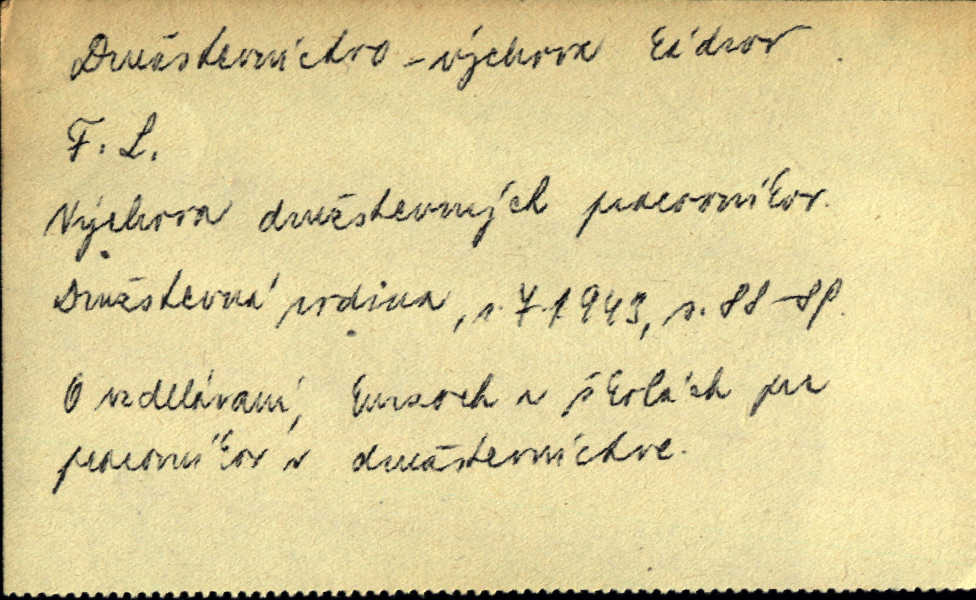 Družstevníctvo - výchova kádrov
F. L.
Výchova družstevných pracovníkov.
Družstevná rodina, r. 7.1943, s. 88-89.
O vzdelávaní, kurzoch a školách pre
pracovníkov v družstevníctve.